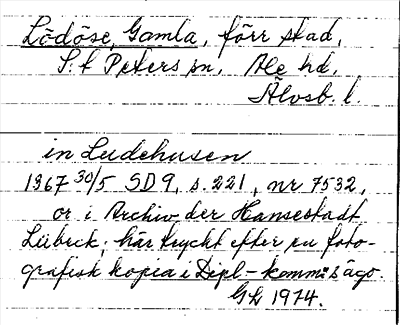 Lödöse, Gamla, förr stad,
S:t Peters sn, Ale hd,
Älvsb. l.
in Ludehusen
1367 30/5 SD 9, s. 221, nr 7532,
or i Archiv der Hansestadt
Lübeck; här tryckt efter en foto-
grafisk kopia i Dipl-komm:s ägo.
GL 1974.